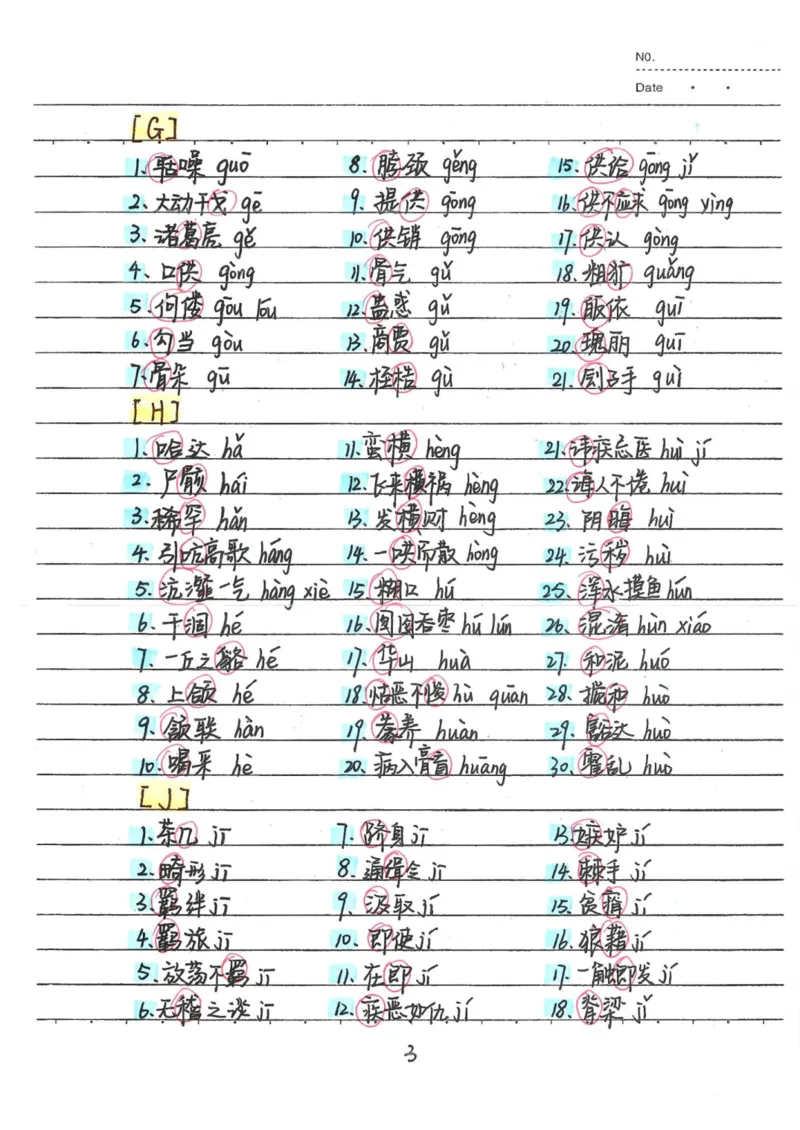 NO.
Date
[G]
1、聒噪 guō 8、脖颈 gěng 15、供给 gōng jǐ
2、大动干戈 gē 9、提供 gōng 16、供不应求 gōng yìng
3、诸葛亮 gě 10、供销 gōng 17、供认 gòng
4、口供 gòng 11、骨气 gǔ 18、粗犷 guǎng
5、佝偻 gōu lóu 12、蛊惑 gǔ 19、皈依 guī
6、勾当 gòu 13、商贾 gǔ 20、瑰丽 guī
7、骨朵 gū 14、桎梏 gù 21、刽子手 guì
[H]
1、哈达 hǎ 11、蛮横 hèng 21、讳疾忌医 huì jí
2、尸骸 hái 12、飞来横祸 hèng 22、诲人不倦 huì
3、稀罕 hǎn 13、发横财 hèng 23、阴晦 huì
4、引吭高歌 háng 14、一哄而散 hòng 24、污秽 huì
5、沆瀣一气 hàng xiè 15、糊口 hú 25、浑水摸鱼 hún
6、干涸 hé 16、囫囵吞枣 hú lún 26、混淆 hùn xiáo
7、一丘之貉 hé 17、华山 huà 27、和泥 huó
8、上颌 hé 18、怙恶不悛 hù quān 28、搅和 huò
9、颔联 hàn 19、豢养 huàn 29、豁达 huò
10、喝采 hè 20、病入膏肓 huāng 30、霍乱 huò
[J]
1、茶几 jī 7、跻身 jī 13、嫉妒 jí
2、畸形 jī 8、通缉令 jī 14、棘手 jí
3、羁绊 jī 9、汲取 jí 15、贫瘠 jí
4、羁旅 jī 10、即使 jí 16、狼藉 jí
5、放荡不羁 jī 11、在即 jí 17、一触即发 jí
6、无稽之谈 jī 12、疾恶如仇 jí 18、脊梁 jǐ
3